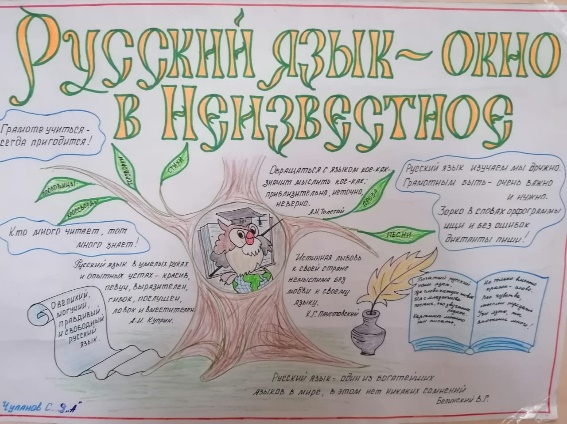 Русский язык ~ окно
в Неизвестное
Грамоте учиться -
всегда пригодится!
Кто много читает, тот
много знает!
стихи
Обращаться с языком кое-как-
значит мыслить кое-как:
приблизительно, неточно,
неверно.
А.Н. Толстой
проза
песни
Русский язык изучаем мы дружно.
Грамотным быть - очень важно
и нужно.
Зорко в словах орфограммы
ищи и без ошибок
диктанты пиши!
Русский язык в умелых руках
и опытных устах - красив,
певуч, выразителен,
гибок, послушен,
ловок и вместителен
А.И. Куприн.
Истинная любовь
к своей стране
немыслима без
любви к своему
языку.
К.Г. Паустовский
О великий,
могучий,
правдивый
и свободный
русский
язык.
Русский язык - один из богатейших
языков в мире, в этом нет никаких сомнений
Белинский В.Г.
Чупанов С. 9 "А"